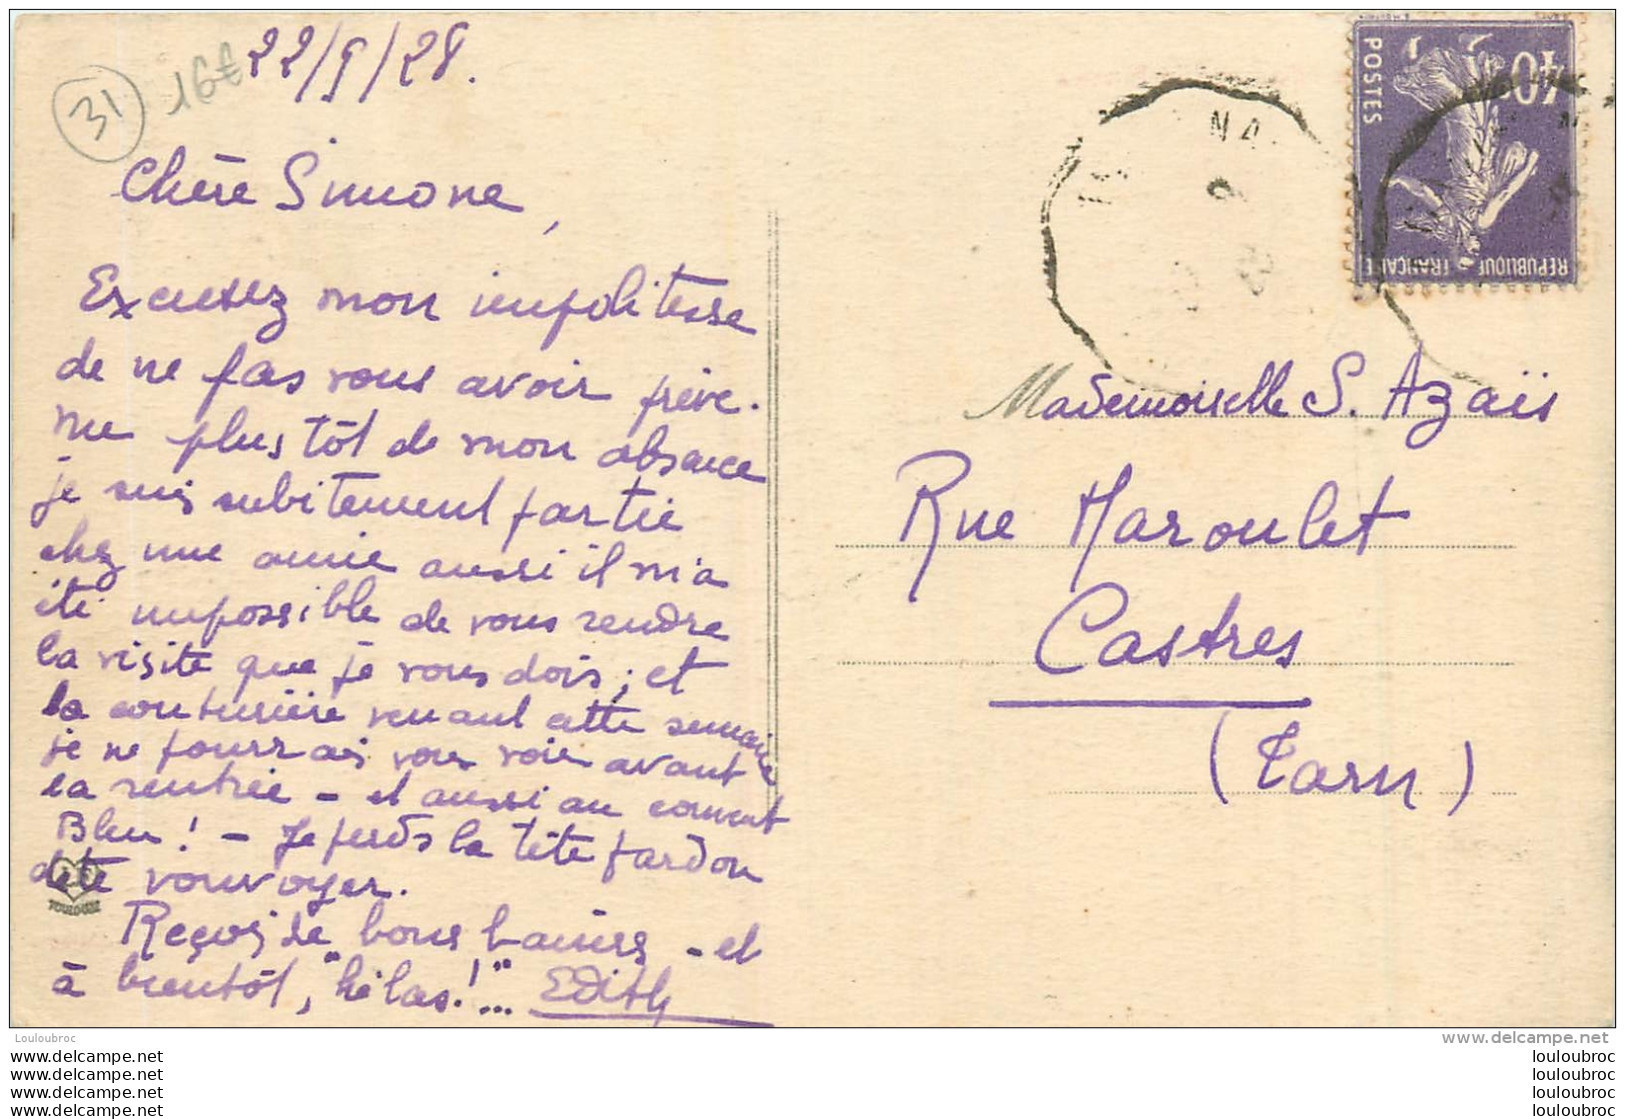 31
16€
22/9/28.
Chère Simone,
Excusez mon impolitesse
de ne pas vous avoir préve-
nue plus tôt de mon absence
je suis subitement partie
chez une amie aussi il m'a
été impossible de vous rendre
la visite que je vous dois; et
la couturière venant cette semaine
je ne pourrai vous voir avant
la rentrée - et aussi au couvent
Bleu! - Je perds la tête pardon
de te vouvoyer.
Reçois de bons baisers - et
à bientôt, "hélas!"... Edith
TOULOUSE
NA
40c
POSTES
REPUBLIQUE FRANÇAISE
Mademoiselle S. Azaïs
Rue Maroulet
Castres
(Tarn)
Louloubroc
www.delcampe.net
www.delcampe.net
www.delcampe.net
www.delcampe.net
www.delcampe.net
louloubroc
louloubroc
louloubroc
louloubroc